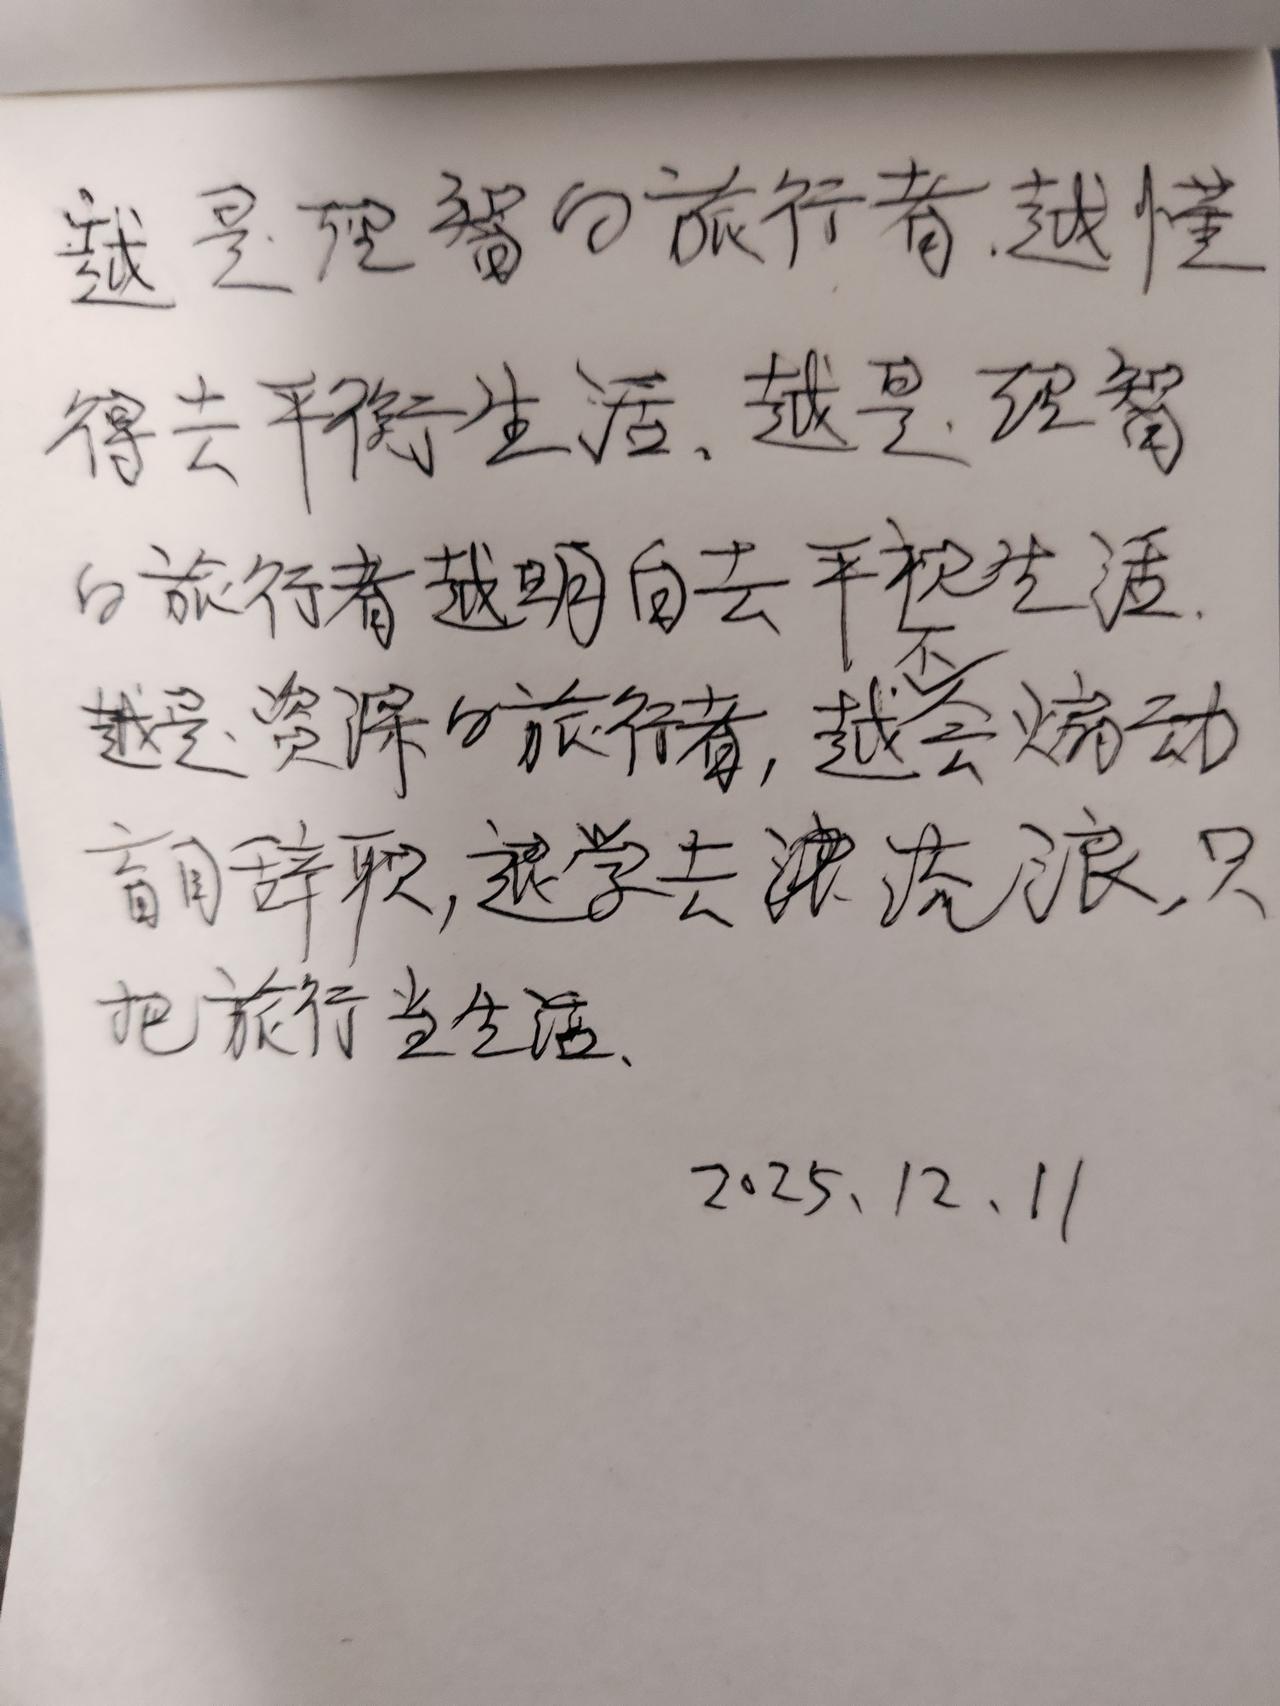 越是理智的旅行者.越懂
得去平衡生活、越是.理智
的旅行者越明白去平视生活.
越是、资深的旅行者,越不会煽动
盲目辞职,退学去流浪,只
把旅行当生活、
2025、12、11